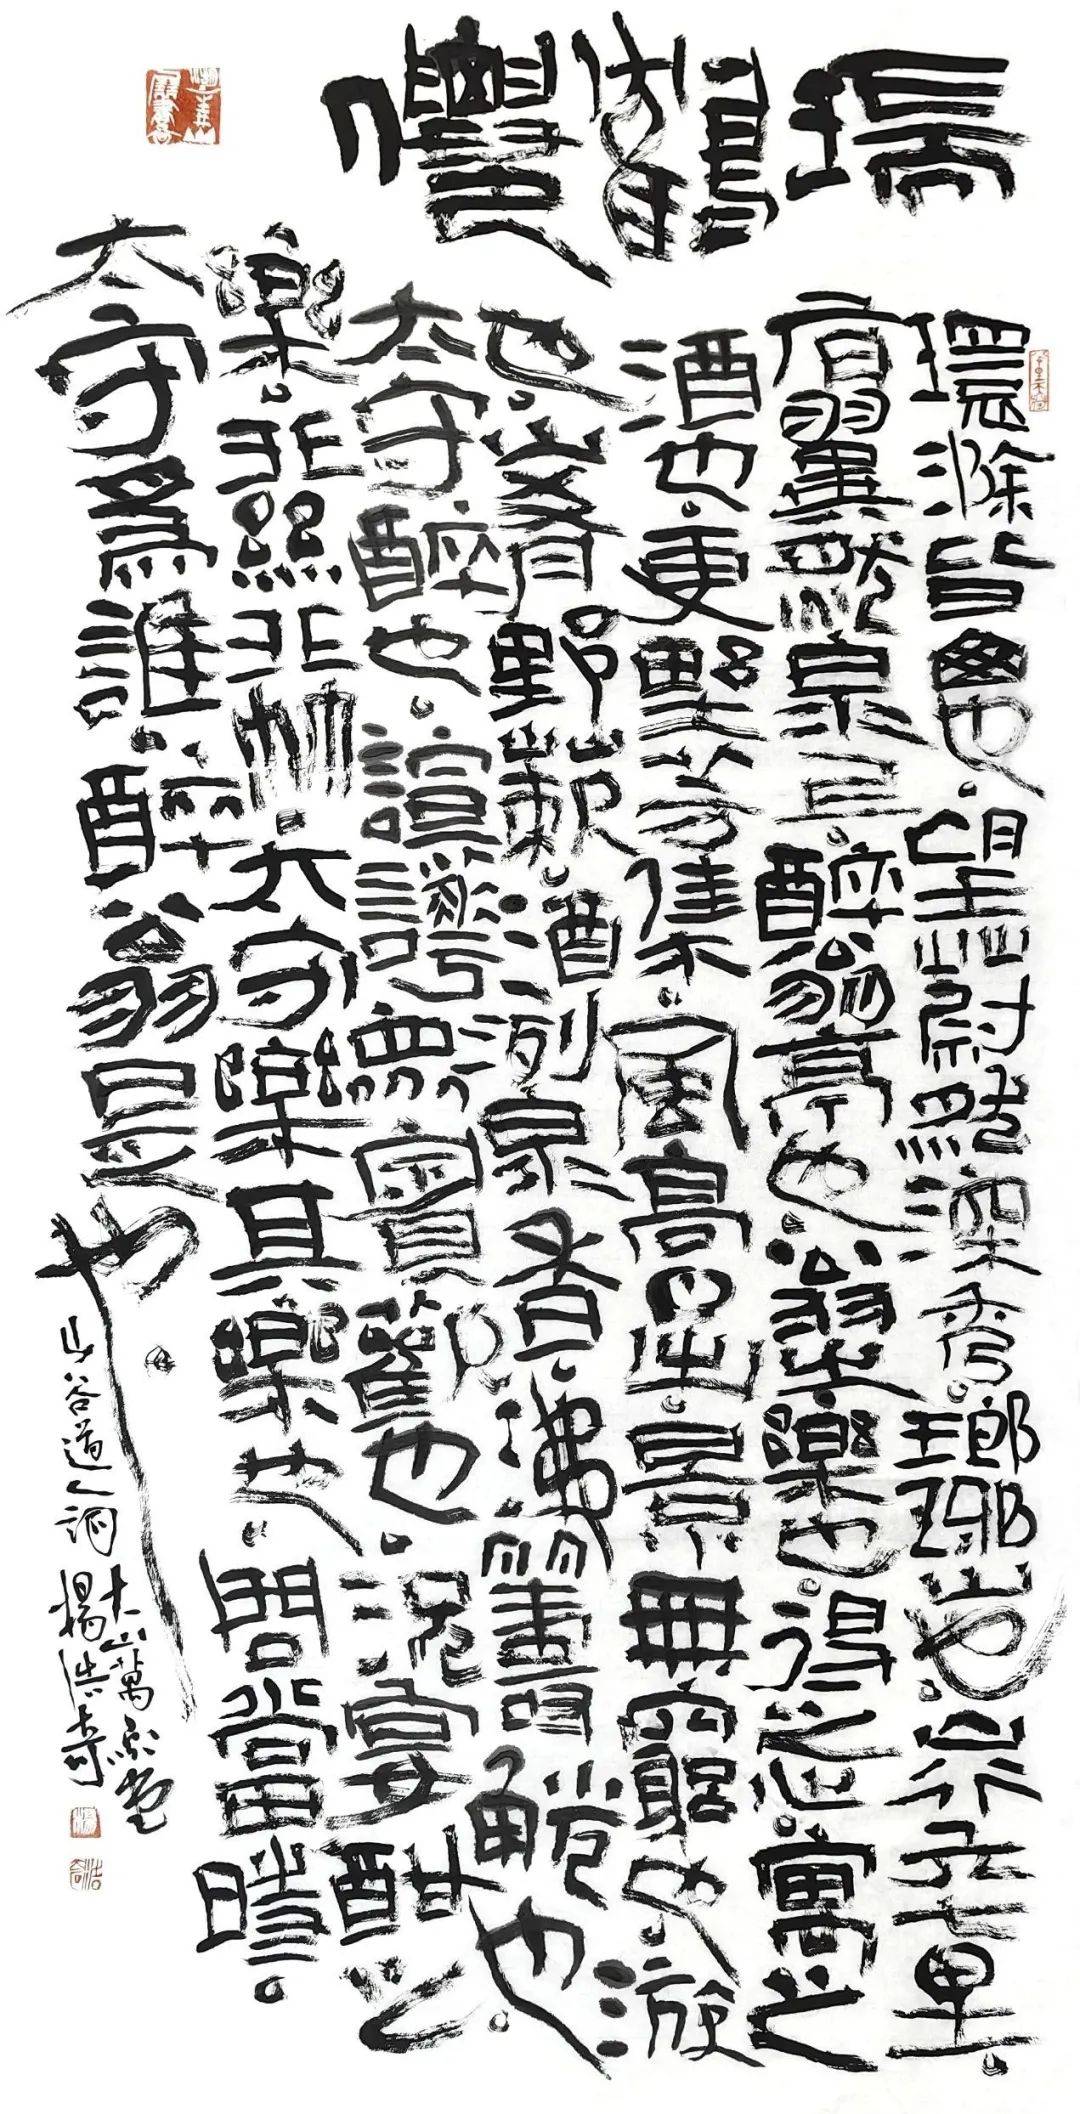 瑞鶴僊
環滁皆山也。望蔚然深秀。瑯琊山也。山行六七里。
有翼然泉上。醉翁亭也。翁之樂也。得之心。寓之
酒也。更野芳佳木。風高日出。景無窮也。游
也。山肴野蔌。酒洌泉香。沸籌觥也。
太守醉也。諠譁眾賓歡也。況宴酣之
樂。非絲非竹。太守樂其樂也。問當時。
太守為誰。醉翁是也。
山谷道人詞
楊浩奇